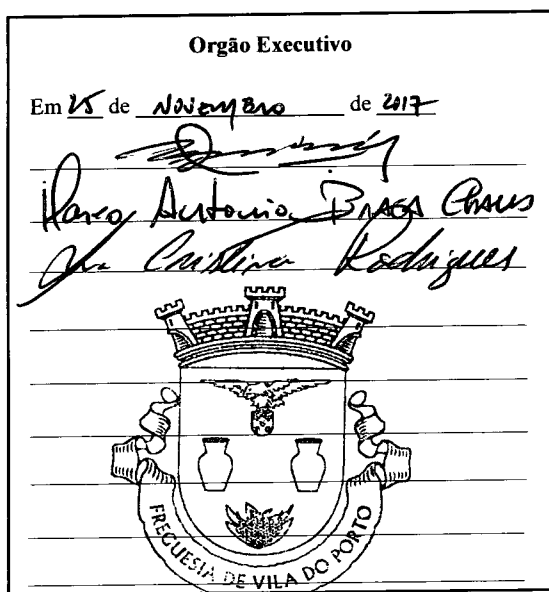 Orgão Executivo
Em 25 de Novembro de 2017
Marco Antonio Braga Chaves
Cristina Rodrigues
FREGUESIA DE VILA DO PORTO